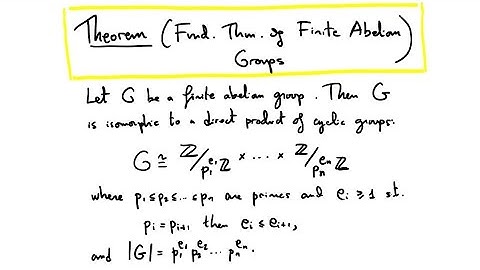 Theorem (Fund. Thm. of Finite Abelian)
Groups
Let G be a finite abelian group. Then G
is isomorphic to a direct product of cyclic groups.
G ≅ ℤ/p₁^e₁ℤ × ... × ℤ/pₙ^eₙℤ
where p₁ ≤ p₂ ≤ ... ≤ pₙ are primes and eᵢ ≥ 1 st.
pᵢ = pᵢ₊₁ then eᵢ ≤ eᵢ₊₁,
and |G| = p₁^e₁ p₂^e₂ ... pₙ^eₙ.